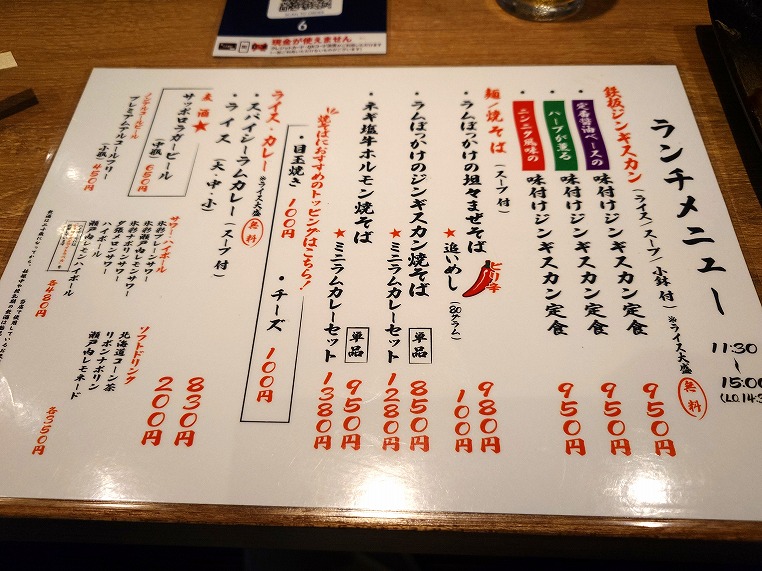 6
現金が使えません
ランチメニュー
11:30
~
15:00
鉄板ジンギスカン(ライス/スープ/小鉢 付) ※ライス大盛 無料
・定番醤油ベースの 味付けジンギスカン定食 950円
・ハーブが薫る 味付けジンギスカン定食 950円
・ニンニク風味の 味付けジンギスカン定食 950円
麺/焼そば(スープ付)
・ラムぶっかけの坦々まぜそば ピリ辛 980円
★追いめし(80グラム) 100円
・ラムぶっかけのジンギスカン焼そば 単品 850円
★ミニラムカレーセット 1280円
・ネギ塩牛ホルモン焼そば 単品 950円
★ミニラムカレーセット 1380円
焼そばにおすすめのトッピングはこちら!
・目玉焼き 100円 ・チーズ 100円
ライス・カレー ※ライス大盛 無料
・スパイシーラムカレー(スープ付) 830円
・ライス(大・中・小) 200円
麦酒★
サッポロラガービール(中瓶) 650円
ノンアルコールビール
プレミアムアルコールフリー(小瓶) 450円
サワー・ハイボール
氷彩プレーンサワー
氷彩瀬戸内レモンサワー
氷彩ナポリンサワー
夕張メロンサワー
ハイボール
瀬戸内レモンハイボール
各480円
ソフトドリンク
北海道コーン茶
リボンナポリン
瀬戸内レモネード
各350円